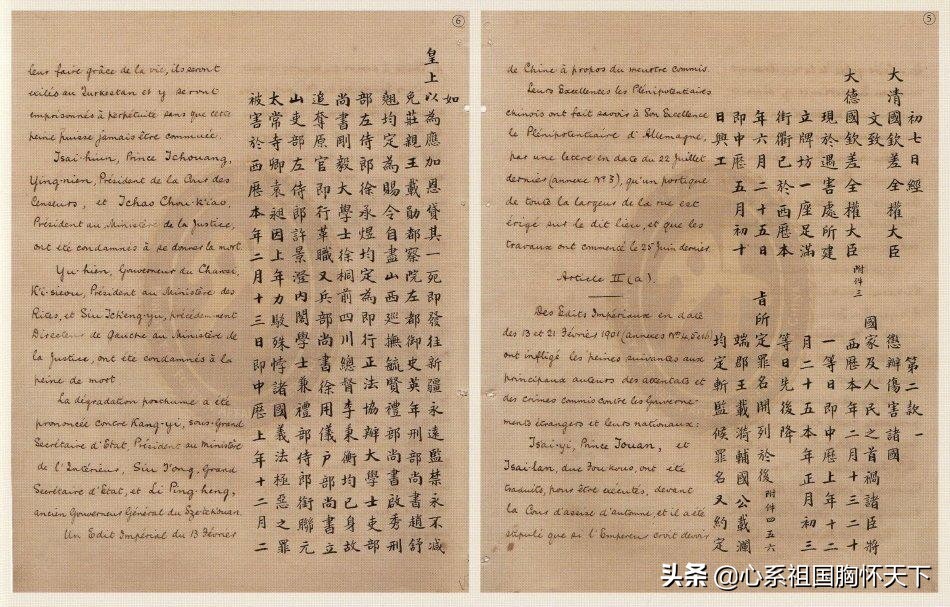 ⑤
初七日經
大清國欽差全權大臣
文致
大德國欽差全權大臣 附件三
現於遇害處所建
立牌坊一座足滿
街衢已於西歷本
年六月二十五日
即中歷五月初十
日興工
第二款 一
懲辦傷害諸國
國家及人民之首禍諸臣將
西歷本年二月十三二十
一等日即中歷上年十二
月二十五本年正月初三
等日先後降
旨所定罪名開列於後 附件四五六
端郡王載漪輔國公載瀾
均定斬監候罪名又約定
de Chine à propos du meurtre commis.
Leurs Excellences les Plénipotentiaires
chinois ont fait savoir à Son Excellence
le Plénipotentiaire d'Allemagne,
par une lettre en date du 22 Juillet
dernier (annexe Nº 3), qu'un portique
de toute la largeur de la rue est
érigé sur le dit lieu, et que les
travaux ont commencé le 25 juin dernier.
Article II (a).
Des Edits Impériaux en date
des 13 et 21 Février 1901 (annexes Nos 4, 5 et 6)
ont infligé les peines suivantes aux
principaux auteurs des attentats et
des crimes commis contre les Gouverne-
ments étrangers et leurs nationaux:
Tsai-yi, Prince Touan, et
Tsai-lan, duc Fou-kouo, ont été
traduits, pour être exécutés, devant
la Cour d'assise d'automne, et il a été
stipulé que si l'Empereur croit devoir
⑥
如
皇上以為應加恩貸其一死即發往新疆永遠監禁永不減
免莊親王載勛都察院左都御史英年刑部尚書趙舒
翹均定為賜令自盡山西巡撫毓賢禮部尚書啟秀刑
部左侍郎徐承煜均定為即行正法協辦大學士吏部
尚書剛毅大學士徐桐前四川總督李秉衡均已身故
追奪原官即行革職又兵部尚書徐用儀戶部尚書立
山吏部左侍郎許景澄內閣學士兼禮部侍郎銜聯元
太常寺卿袁昶因上年力駁殊悖諸國義法極惡之罪
被害於西歷本年二月十三日即中歷上年十二月二
leur faire grâce de la vie, ils seront
exilés au Turkestan et y seront
emprisonnés à perpétuité sans que cette
peine puisse jamais être commuée.
Tsai-hiun, Prince Tchouang,
Ying-nien, Président de la Cour des
Censeurs, et Tchao Chou-k'iao,
Président au Ministère de la Justice,
ont été condamnés à se donner la mort.
Yu-hien, Gouverneur du Chansi,
K'i-sieou, Président au Ministère des
Rites, et Siu Tch'eng-yu, précédemment
Directeur de Gauche au Ministère de
la Justice, ont été condamnés à la
peine de mort.
La dégradation posthume a été
prononcée contre Kang-yi, sous-Grand
Secrétaire d'Etat, Président au Ministère
de l'Intérieur, Siu T'ong, Grand
Secrétaire d'Etat, et Li Ping-heng,
ancien Gouverneur Général du Szetchouan.
Un Edit Impérial du 13 Février
头条 @心系祖国胸怀天下